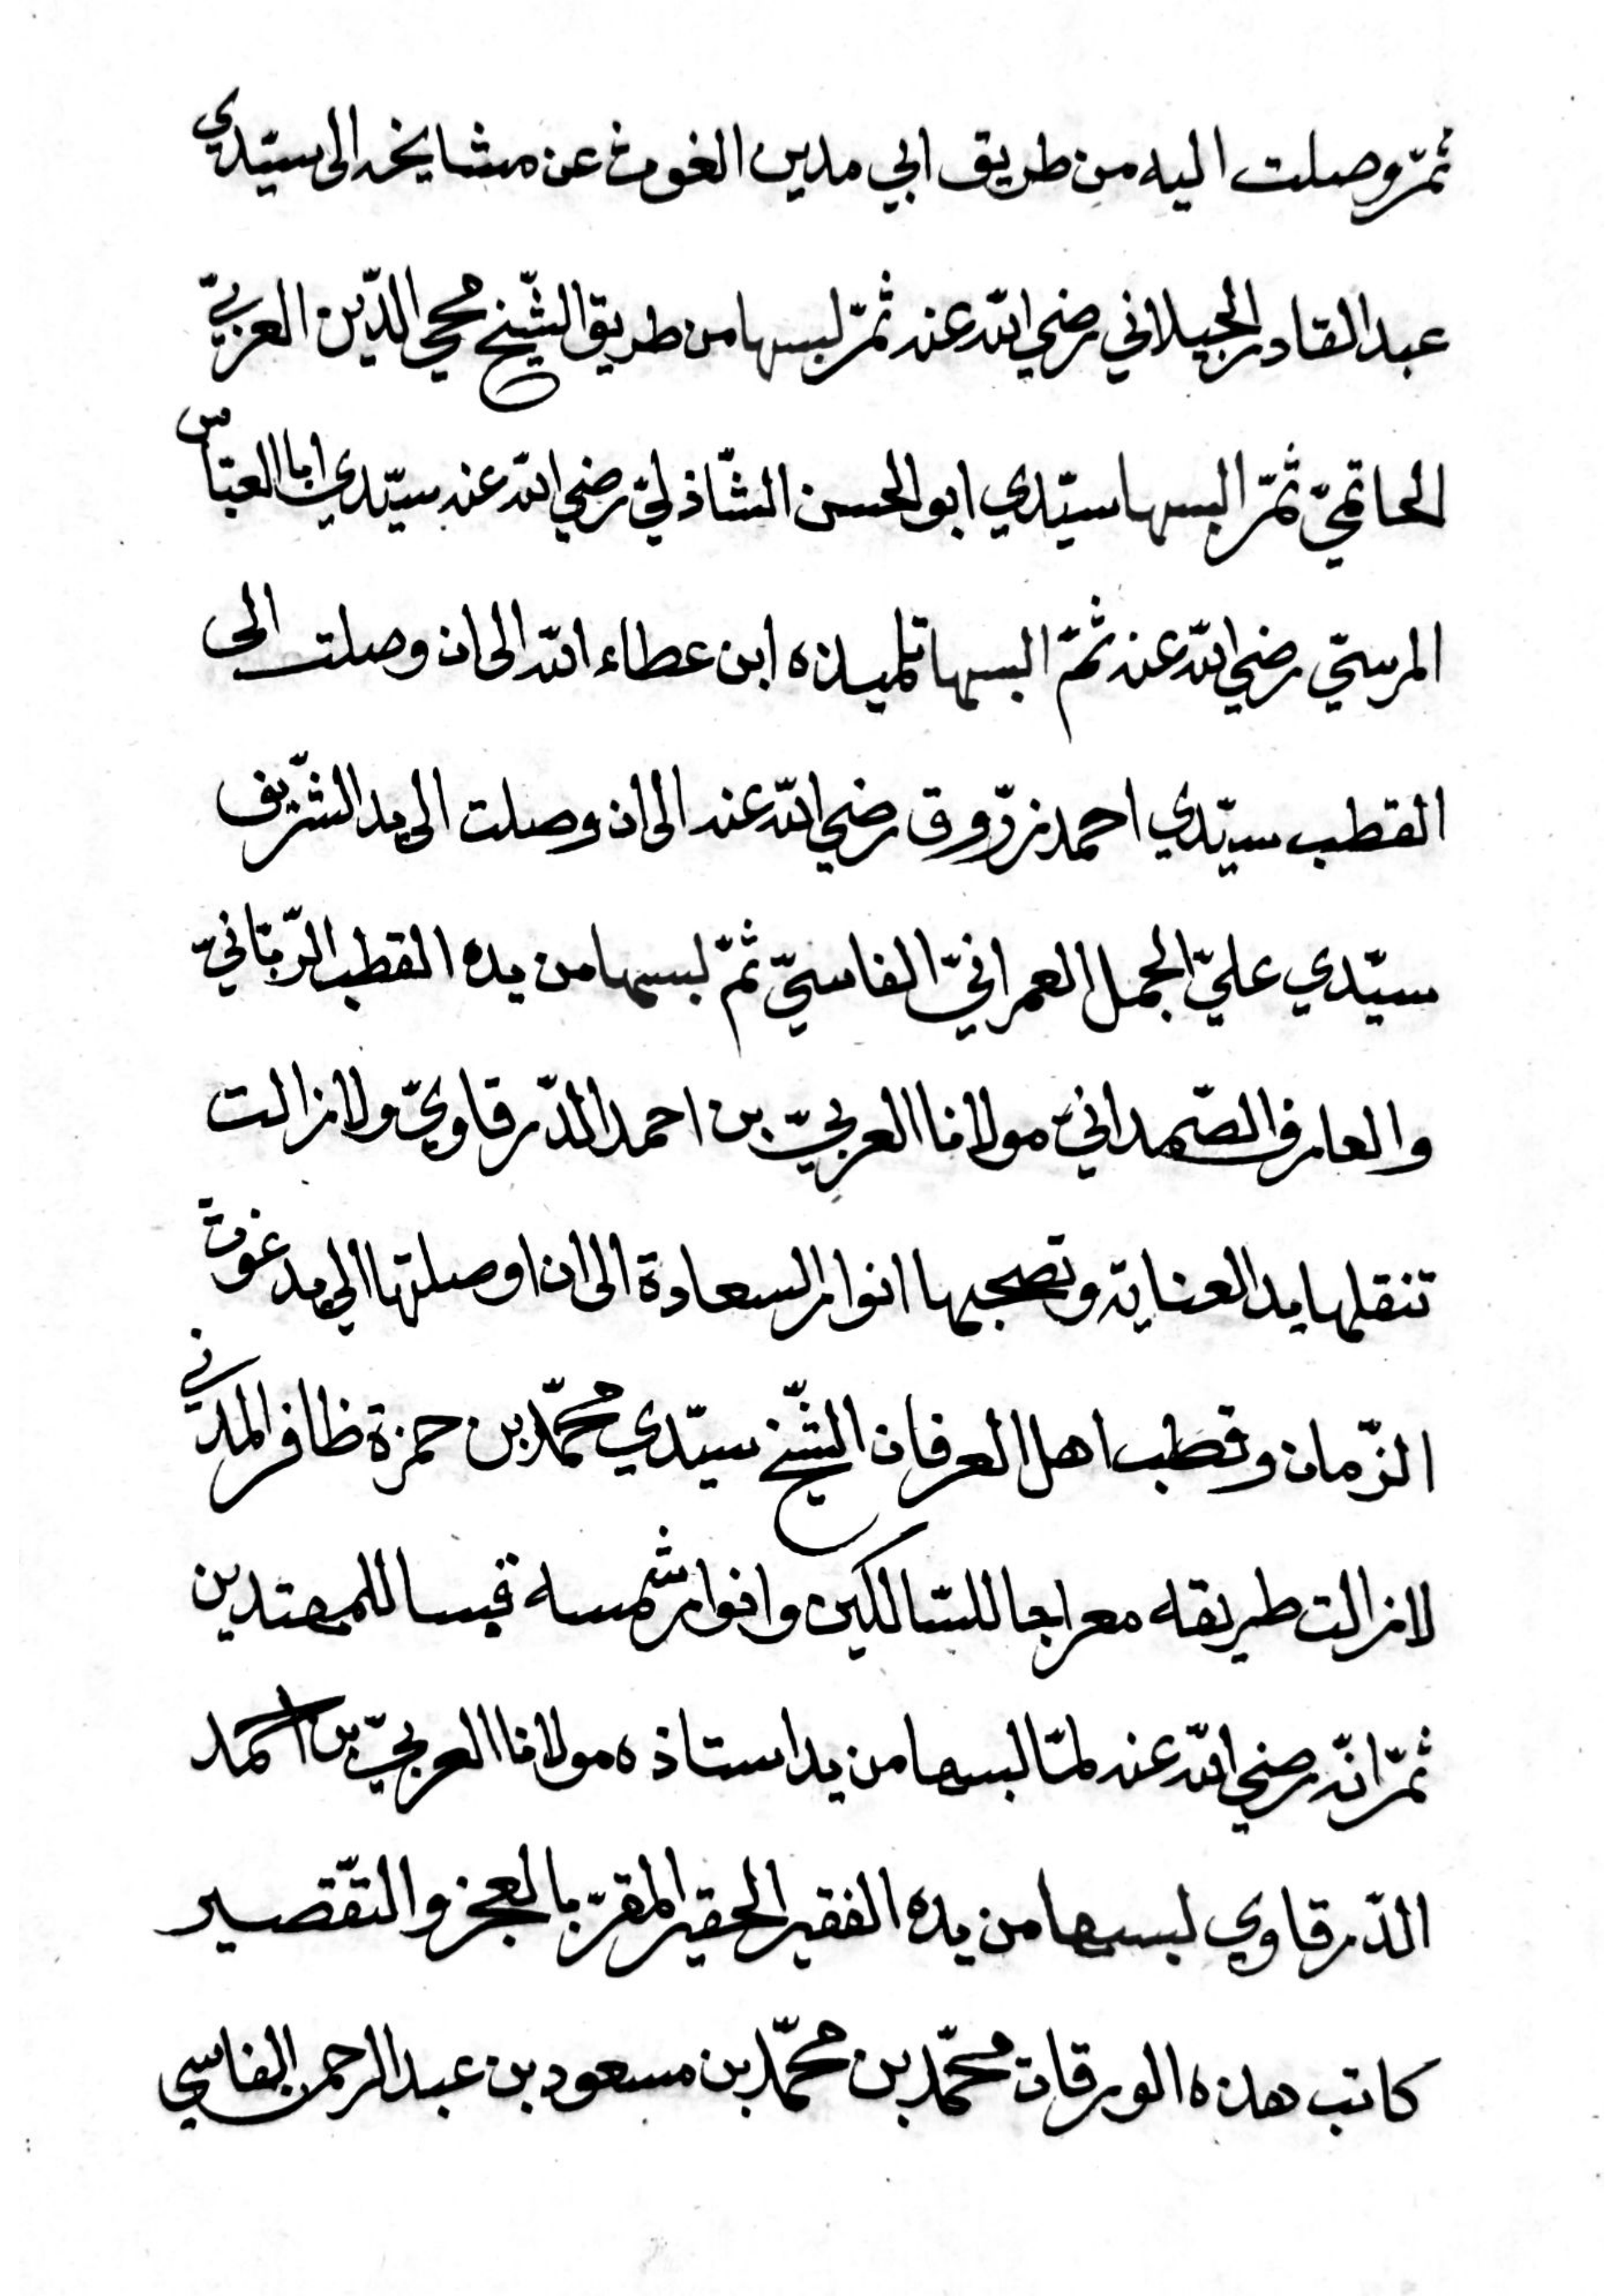 ثمّ وصلت اليه من طريق ابي مدين الغوث عن مشايخه الى سيّدي
عبد القادر الجيلاني رضي الله عنه ثمّ لبسها من طريق الشّيخ محيي الدّين العربيّ
الحاتميّ ثمّ البسها سيّدي ابو الحسن الشّاذليّ رضي الله عنه سيّدي ابا العبّاس
المرسيّ رضي الله عنه ثمّ البسها تلميذه ابن عطاء الله الى ان وصلت الى
القطب سيّدي احمد زرّوق رضي الله عنه الى ان وصلت الى يد الشّريف
سيّدي عليّ الجمل العمرانيّ الفاسيّ ثمّ لبسها من يده القطب الرّبّانيّ
والعارف الصّمدانيّ مولانا العربيّ بن احمد الدّرقاويّ ولا زالت
تنقلها يد العناية وتصحبها انوار السعادة الى ان اوصلتها الى يد غوث
الزّمان وقطب اهل العرفان الشّيخ سيّدي محمّد بن حمزة ظافر المدني
لا زالت طريقه معراجا للسّالكين وانوار شمسه قبسا للمهتدين
ثمّ انّه رضي الله عنه لمّا لبسها من يد استاذه مولانا العربيّ بن احمد
الدّرقاوي لبسها من يده الفقير الحقير المقرّ بالعجز والتّقصير
كاتب هذه الورقات محمّد بن محمّد بن مسعود بن عبد الرحمن الفاسي